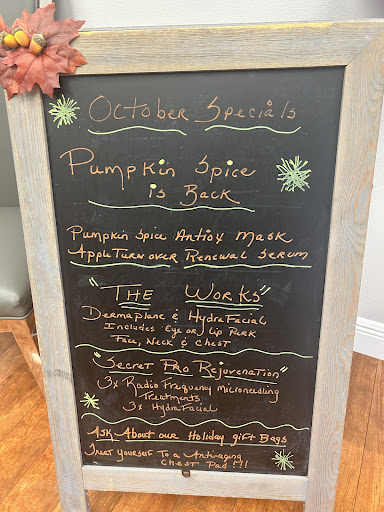 October Specials
Pumpkin Spice
is Back
Pumpkin Spice Antiox Mask
Apple Turn over Renewal Serum
"The Works"
Dermaplane & HydraFacial
Includes Eye or Lip Perk
Face, Neck & Chest
"Secret Pro Rejuvenation"
3x Radio Frequency Microneedling
Treatments
3x HydraFacial
Ask About our Holiday gift Bags
Treat Yourself To a Anti-aging
Chest Pad !!!